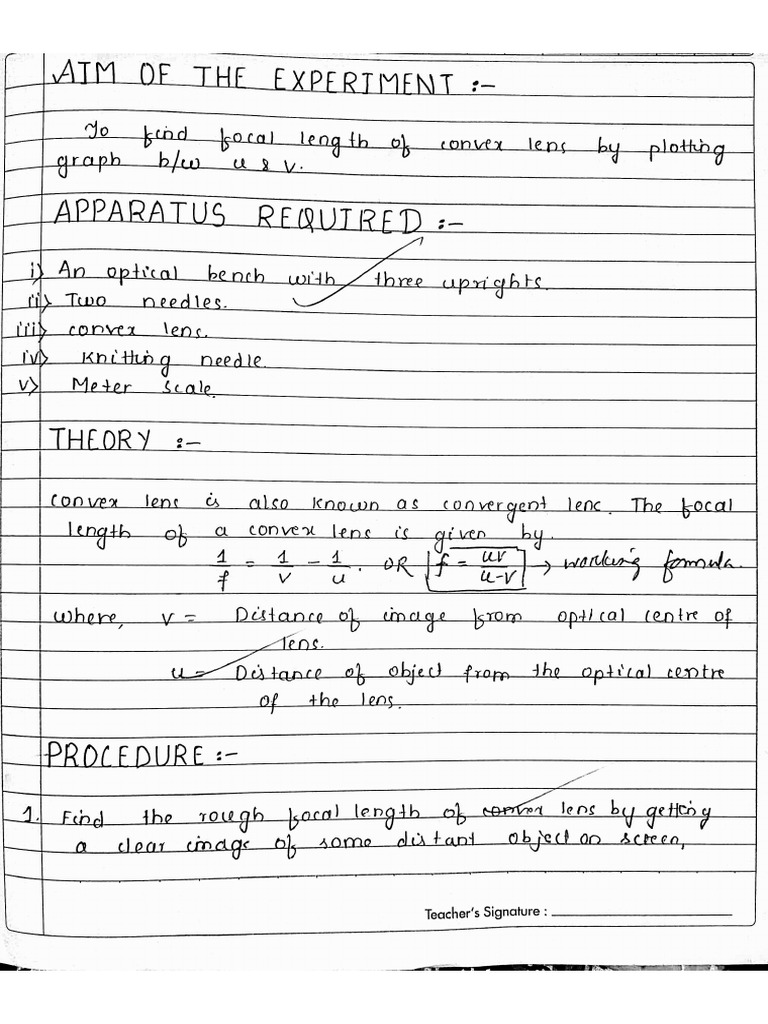 AIM OF THE EXPERIMENT :-
To find focal length of convex lens by plotting
graph b/w u & v.
APPARATUS REQUIRED :-
i) An optical bench with three uprights.
ii) Two needles.
iii) convex lens.
iv) Knitting needle.
v) Meter scale.
THEORY :-
convex lens is also known as convergent lenc. The focal
length of a convex lens is given by.
1/f = 1/v - 1/u. OR f = uv/u-v → working formula.
where, v = Distance of image from optical centre of
lens.
u = Distance of object from the optical centre
of the lens.
PROCEDURE :-
1. Find the rough focal length of convex lens by getting
a clear image of some distant object on screen,
Teacher's Signature :